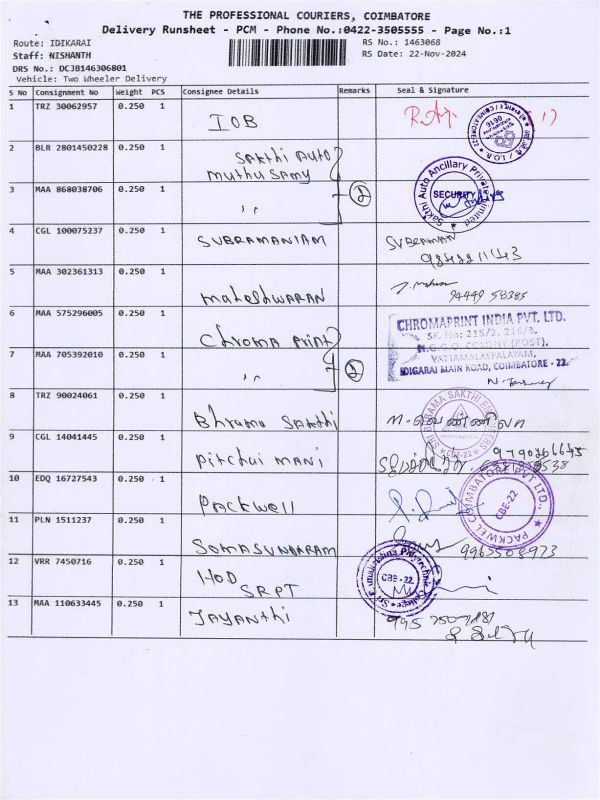 THE PROFESSIONAL COURIERS, COIMBATORE
Delivery Runsheet - PCM - Phone No.:0422-3505555 - Page No.:1
Route: IDIKARAI
RS No.: 1463068
Staff: NISHANTH
RS Date: 22-Nov-2024
DRS No.: DCJB146306801
Vehicle: Two Wheeler Delivery
S No Consignment No Weight PCS Consignee Details Remarks Seal & Signature
1 TRZ 30062957 0.250 1 IOB
2 BLR 2801450228 0.250 1 Sakthi Auto
Muthu Samy
3 MAA 868038706 0.250 1 " 2
Sakthi Auto Ancillary Private Limited
SECURITY
4 CGL 100075237 0.250 1 SUBRAMANIAM SUBRAMAN
5 MAA 302361313 0.250 1 Maheshwaran
94449 58385
6 MAA 575296005 0.250 1 Chroma Print
CHROMAPRINT INDIA PVT. LTD.
SF. No: 215/2, 216/3,
N.G.G.O. COLONY (POST),
VATTAMALAIPALAYAM,
IDIGARAI MAIN ROAD, COIMBATORE - 22.
7 MAA 705392010 0.250 1 " 2
8 TRZ 90024061 0.250 1 Bhrama Sakthi
SRI BHRAMA SAKTHI
CBE-22
9 CGL 14041445 0.250 1 Pitchui Mani
10 EDQ 16727543 0.250 1 Packwell
PACKWEL COIMBATORE PVT LTD.,
CBE-22
11 PLN 1511237 0.250 1 SOMASUNDARAM 9963508973
12 VRR 7450716 0.250 1 HOD
SRPT
Sri Ramakrishna Polytechnic College
CBE - 22
13 MAA 110633445 0.250 1 Jayanthi